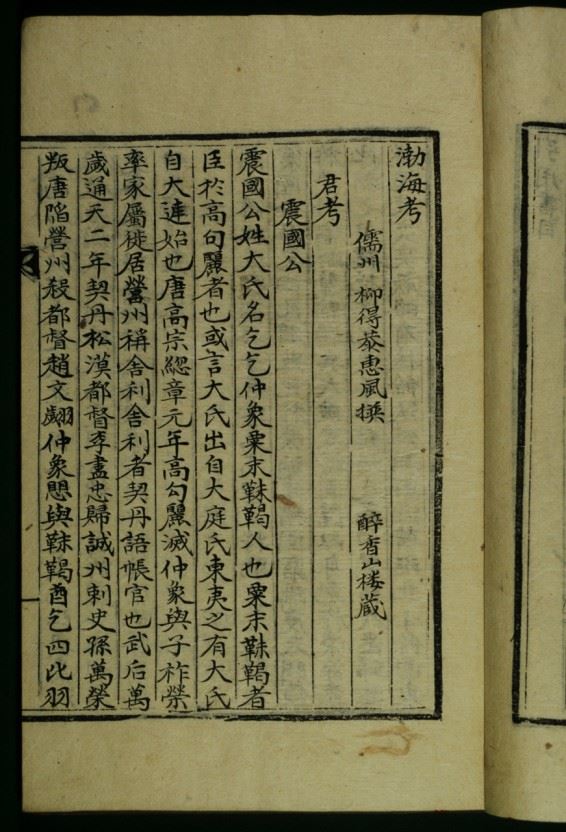 渤海考
儒州 柳得恭惠風撰 醉香山樓蔵
君考
震國公
震國公姓大氏名乞乞仲象粟末靺鞨人也粟末靺鞨者
臣於高句麗者也或言大氏出自大庭氏東夷之有大氏
自大連始也唐高宗緫章元年高勾麗滅仲象與子祚榮
率家屬徙居營州稱舍利舍利者契丹語帳官也武后萬
歲通天二年契丹松漠都督李盡忠歸誠州刺史孫萬榮
叛唐陷營州殺都督趙文翽仲象懼與靺鞨酋乞四比羽